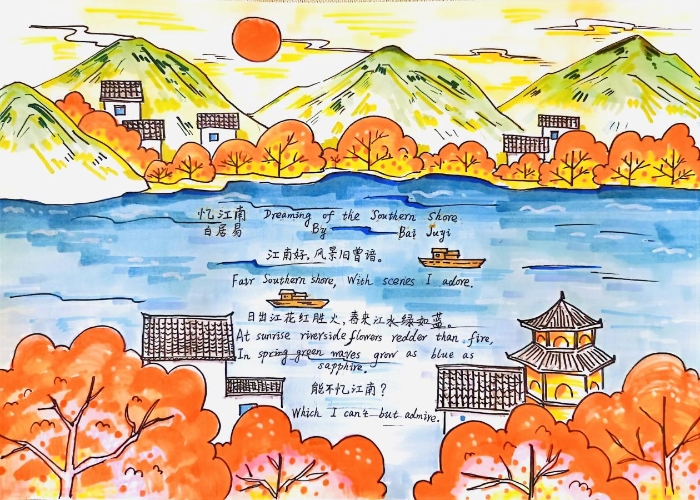 忆江南 Dreaming of the Southern Shore
白居易 By Bai Juyi
江南好,风景旧曾谙。
Fair Southern shore, With scenes I adore.
日出江花红胜火,春来江水绿如蓝。
At sunrise riverside flowers redder than fire,
In spring green waves grow as blue as
sapphire.
能不忆江南?
Which I can't but admire.